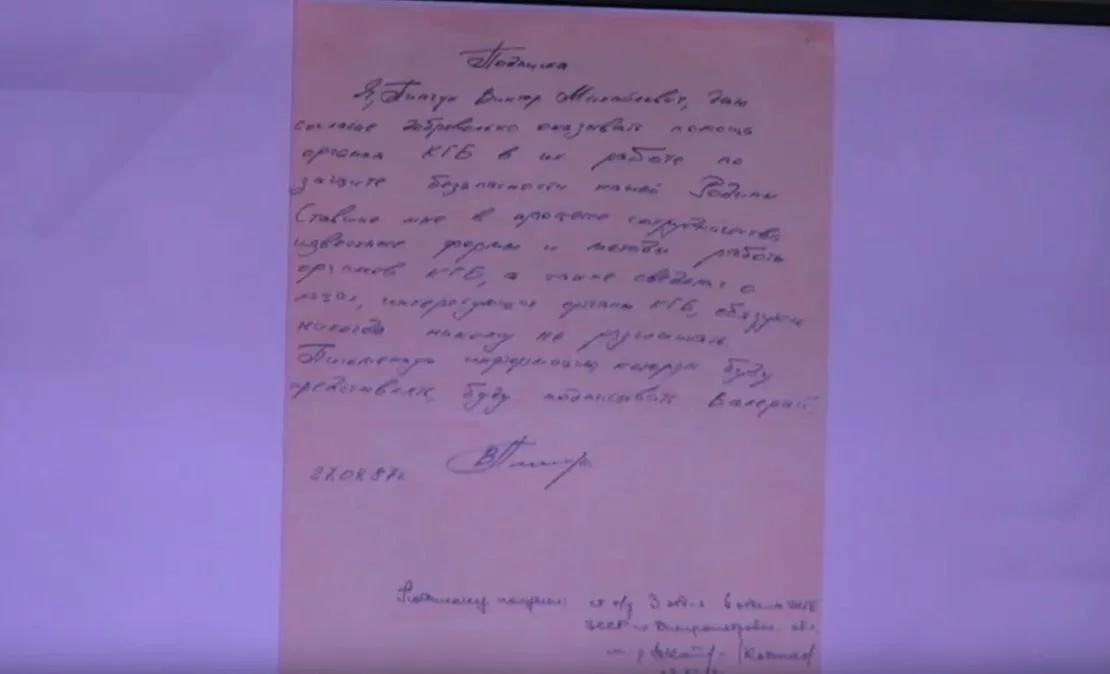 Подписка
Я, Пинчук Виктор Михайлович, даю
согласие добровольно оказывать помощь
органам КГБ в их работе по
защите безопасности нашей Родины
Ставшие мне в процессе сотрудничества
известные формы и методы работы
органов КГБ, а также сведения о
лицах, интересующих органы КГБ, обязуюсь
никогда никому не разглашать
Письменную информацию которую буду
представлять, буду подписывать Валерий
27.04.87г.
Подписку получил: ст о/у 3 отд-я 6 отдела УКГБ
УССР по Днепропетровск. обл.